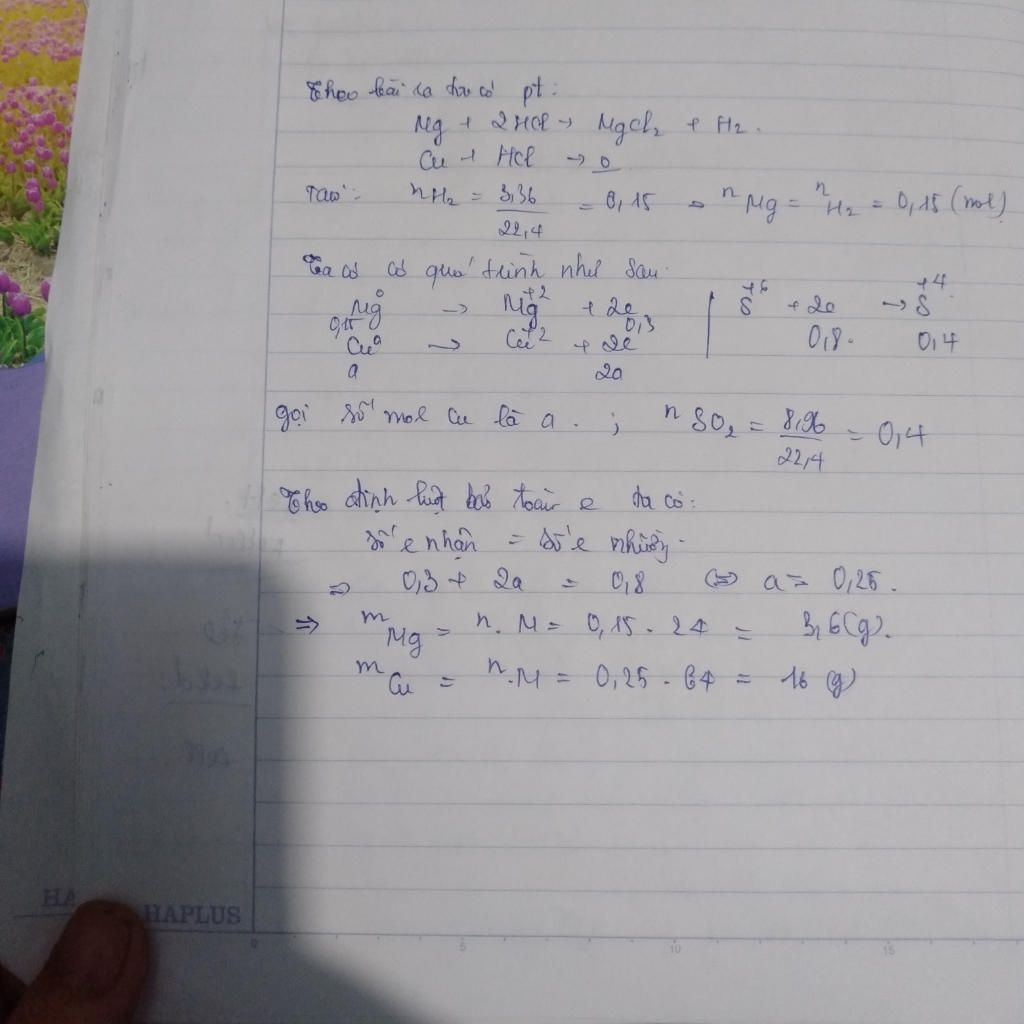 Theo bài ra ta có pt:
Mg + 2HCl → MgCl₂ + H₂.
Cu + HCl → 0
Ta có: nH₂ = 3,36/22,4 = 0,15 ⇒ nMg = nH₂ = 0,15 (mol)
Ta có có quá trình như sau:
Mg⁰ → Mg⁺² + 2e | S⁺⁶ + 2e → S⁺⁴
0,15 0,3 0,8. 0,4
Cu⁰ → Cu⁺² + 2e
a 2a
gọi số mol Cu là a. ; nSO₂ = 8,96/22,4 = 0,4
Theo định luật bảo toàn e ta có:
số e nhận = số e nhường.
⇒ 0,3 + 2a = 0,8 ⇔ a = 0,25.
⇒ mMg = n.M = 0,15.24 = 3,6 (g).
mCu = n.M = 0,25.64 = 16 (g)
HAPLUS
0 5 10 15